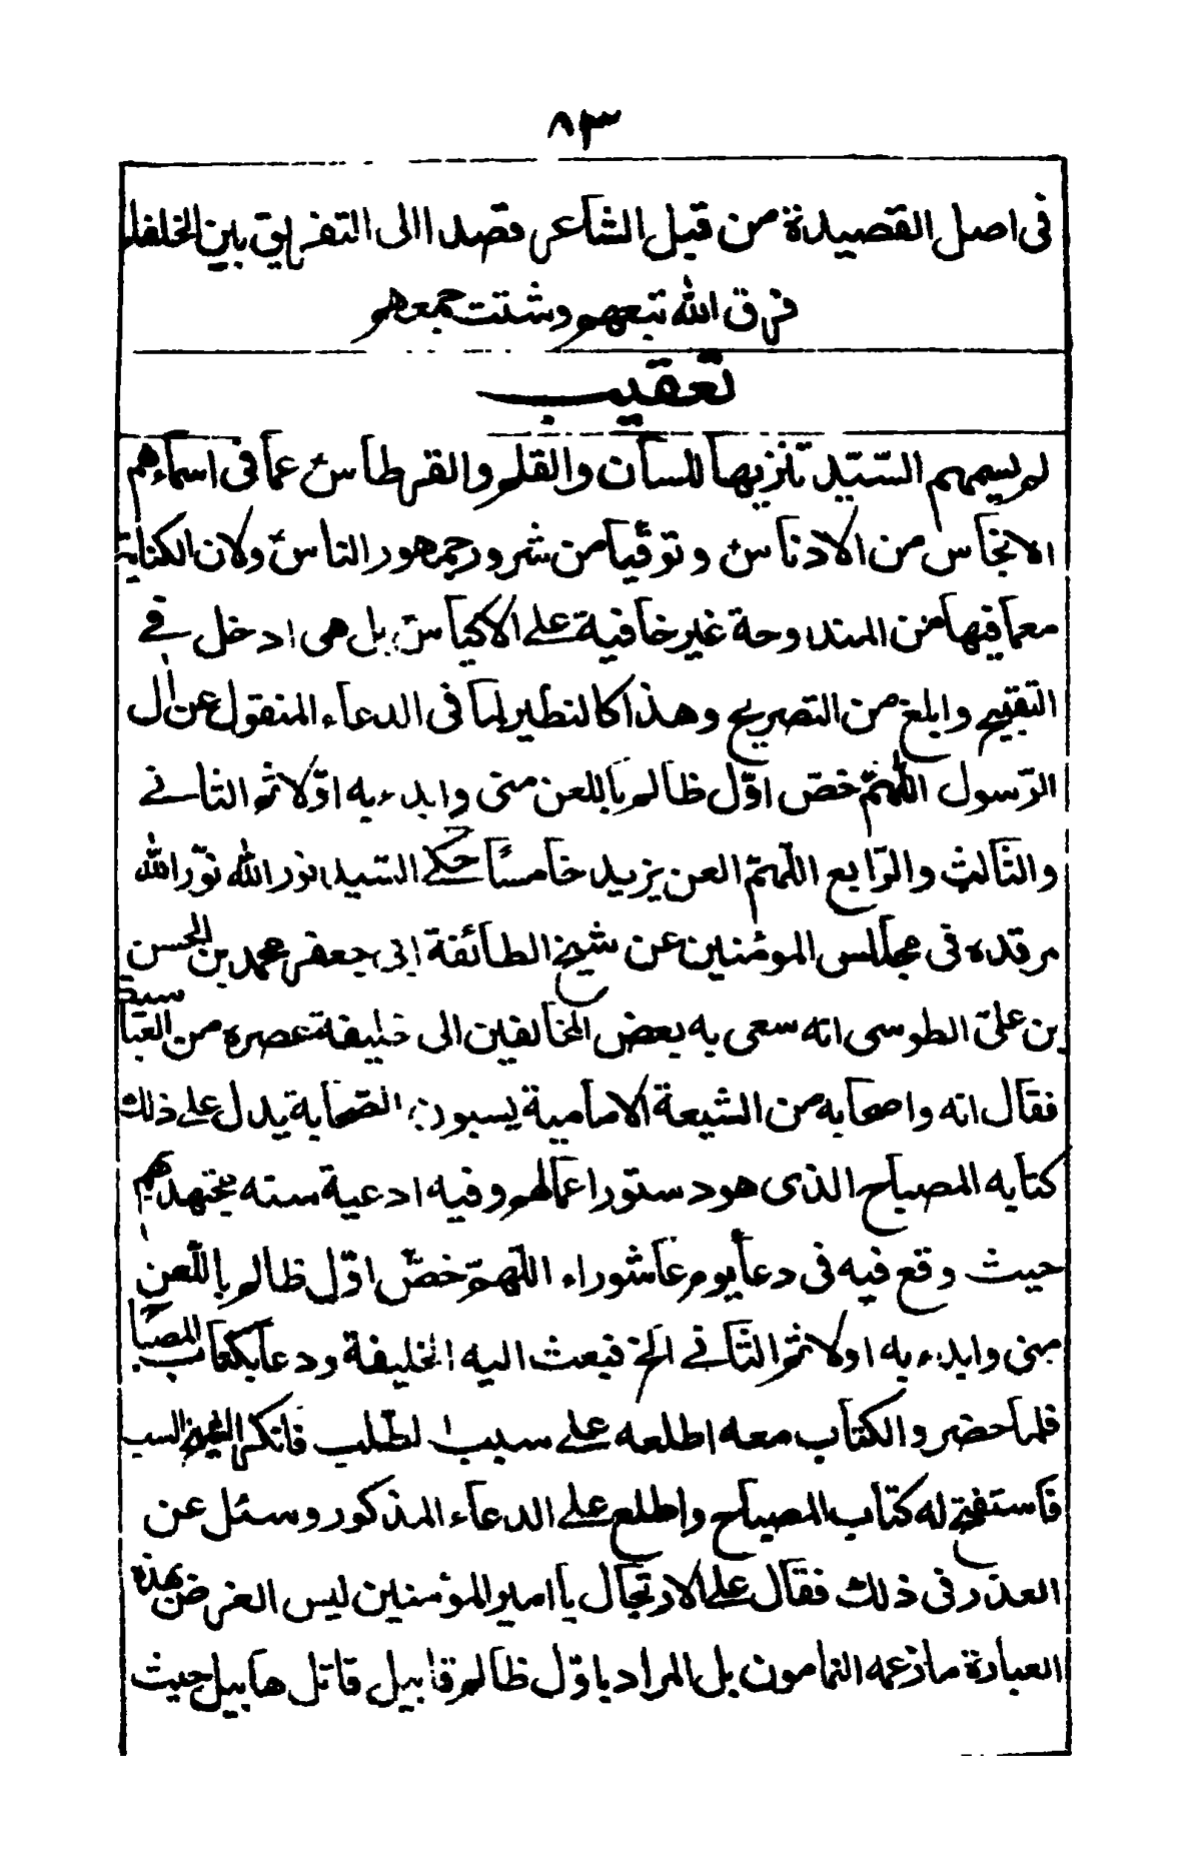 ٨٣
فى اصل القصيدة من قبل الشاعر قصدا الى التفريق بين الخلفاء
فرق الله تبعهم وشتت جمعهم
تعقيب
لم يسمهم السّيّد تنزيها للسان والقلم والقرطاس عما فى اسمائهم
الانجاس من الادناس وتوقيا من شرور جمهور الناس ولان الكناية
مع ما فيها من المندوحة غير خافية على الاكياس بل هى ادخل فى
التقبيح وابلغ من التصريح وهذا كالنظير لما فى الدعاء المنقول عن ال
الرّسول اللّهمّ خصّ اوّل ظالم باللعن منى وابدء به اوّلا ثم الثانى
والثّالث والرّابع اللّهمّ العن يزيد خامسًا حكى السّيد نور الله نوّر الله
مرقده فى مجالس المؤمنين عن شيخ الطائفة ابى جعفر محمد بن الحسن
بن علىّ الطوسى انه سعى به بعض المخالفين الى خليفة عصره من العبّاسية
فقال انه واصحابه من الشيعة الامامية يسبون الصّحابة يدل على ذلك
كتابه المصباح الذى هو دستور اعمالهم وفيه ادعية سنته بمجتهدهم
حيث وقع فيه فى دعا يوم عاشوراء اللّهمّ خصّ اوّل ظالم باللّعن
منى وابدء به اولا ثم الثّانى الخ فبعث اليه الخليفة ودعا بكتاب المصباح
فلما حضر والكتاب معه اطلعه على سبب الطّلب فانكر الشيخ السب
فاستفتح له كتاب المصباح واطلع على الدعاء المذكور وسئل عن
العذر فى ذلك فقال على الارتجال يا امير المؤمنين ليس الغرض بهذه
العبارة ما زعمه النمامون بل المراد باوّل ظالم قابيل قاتل هابيل حيث